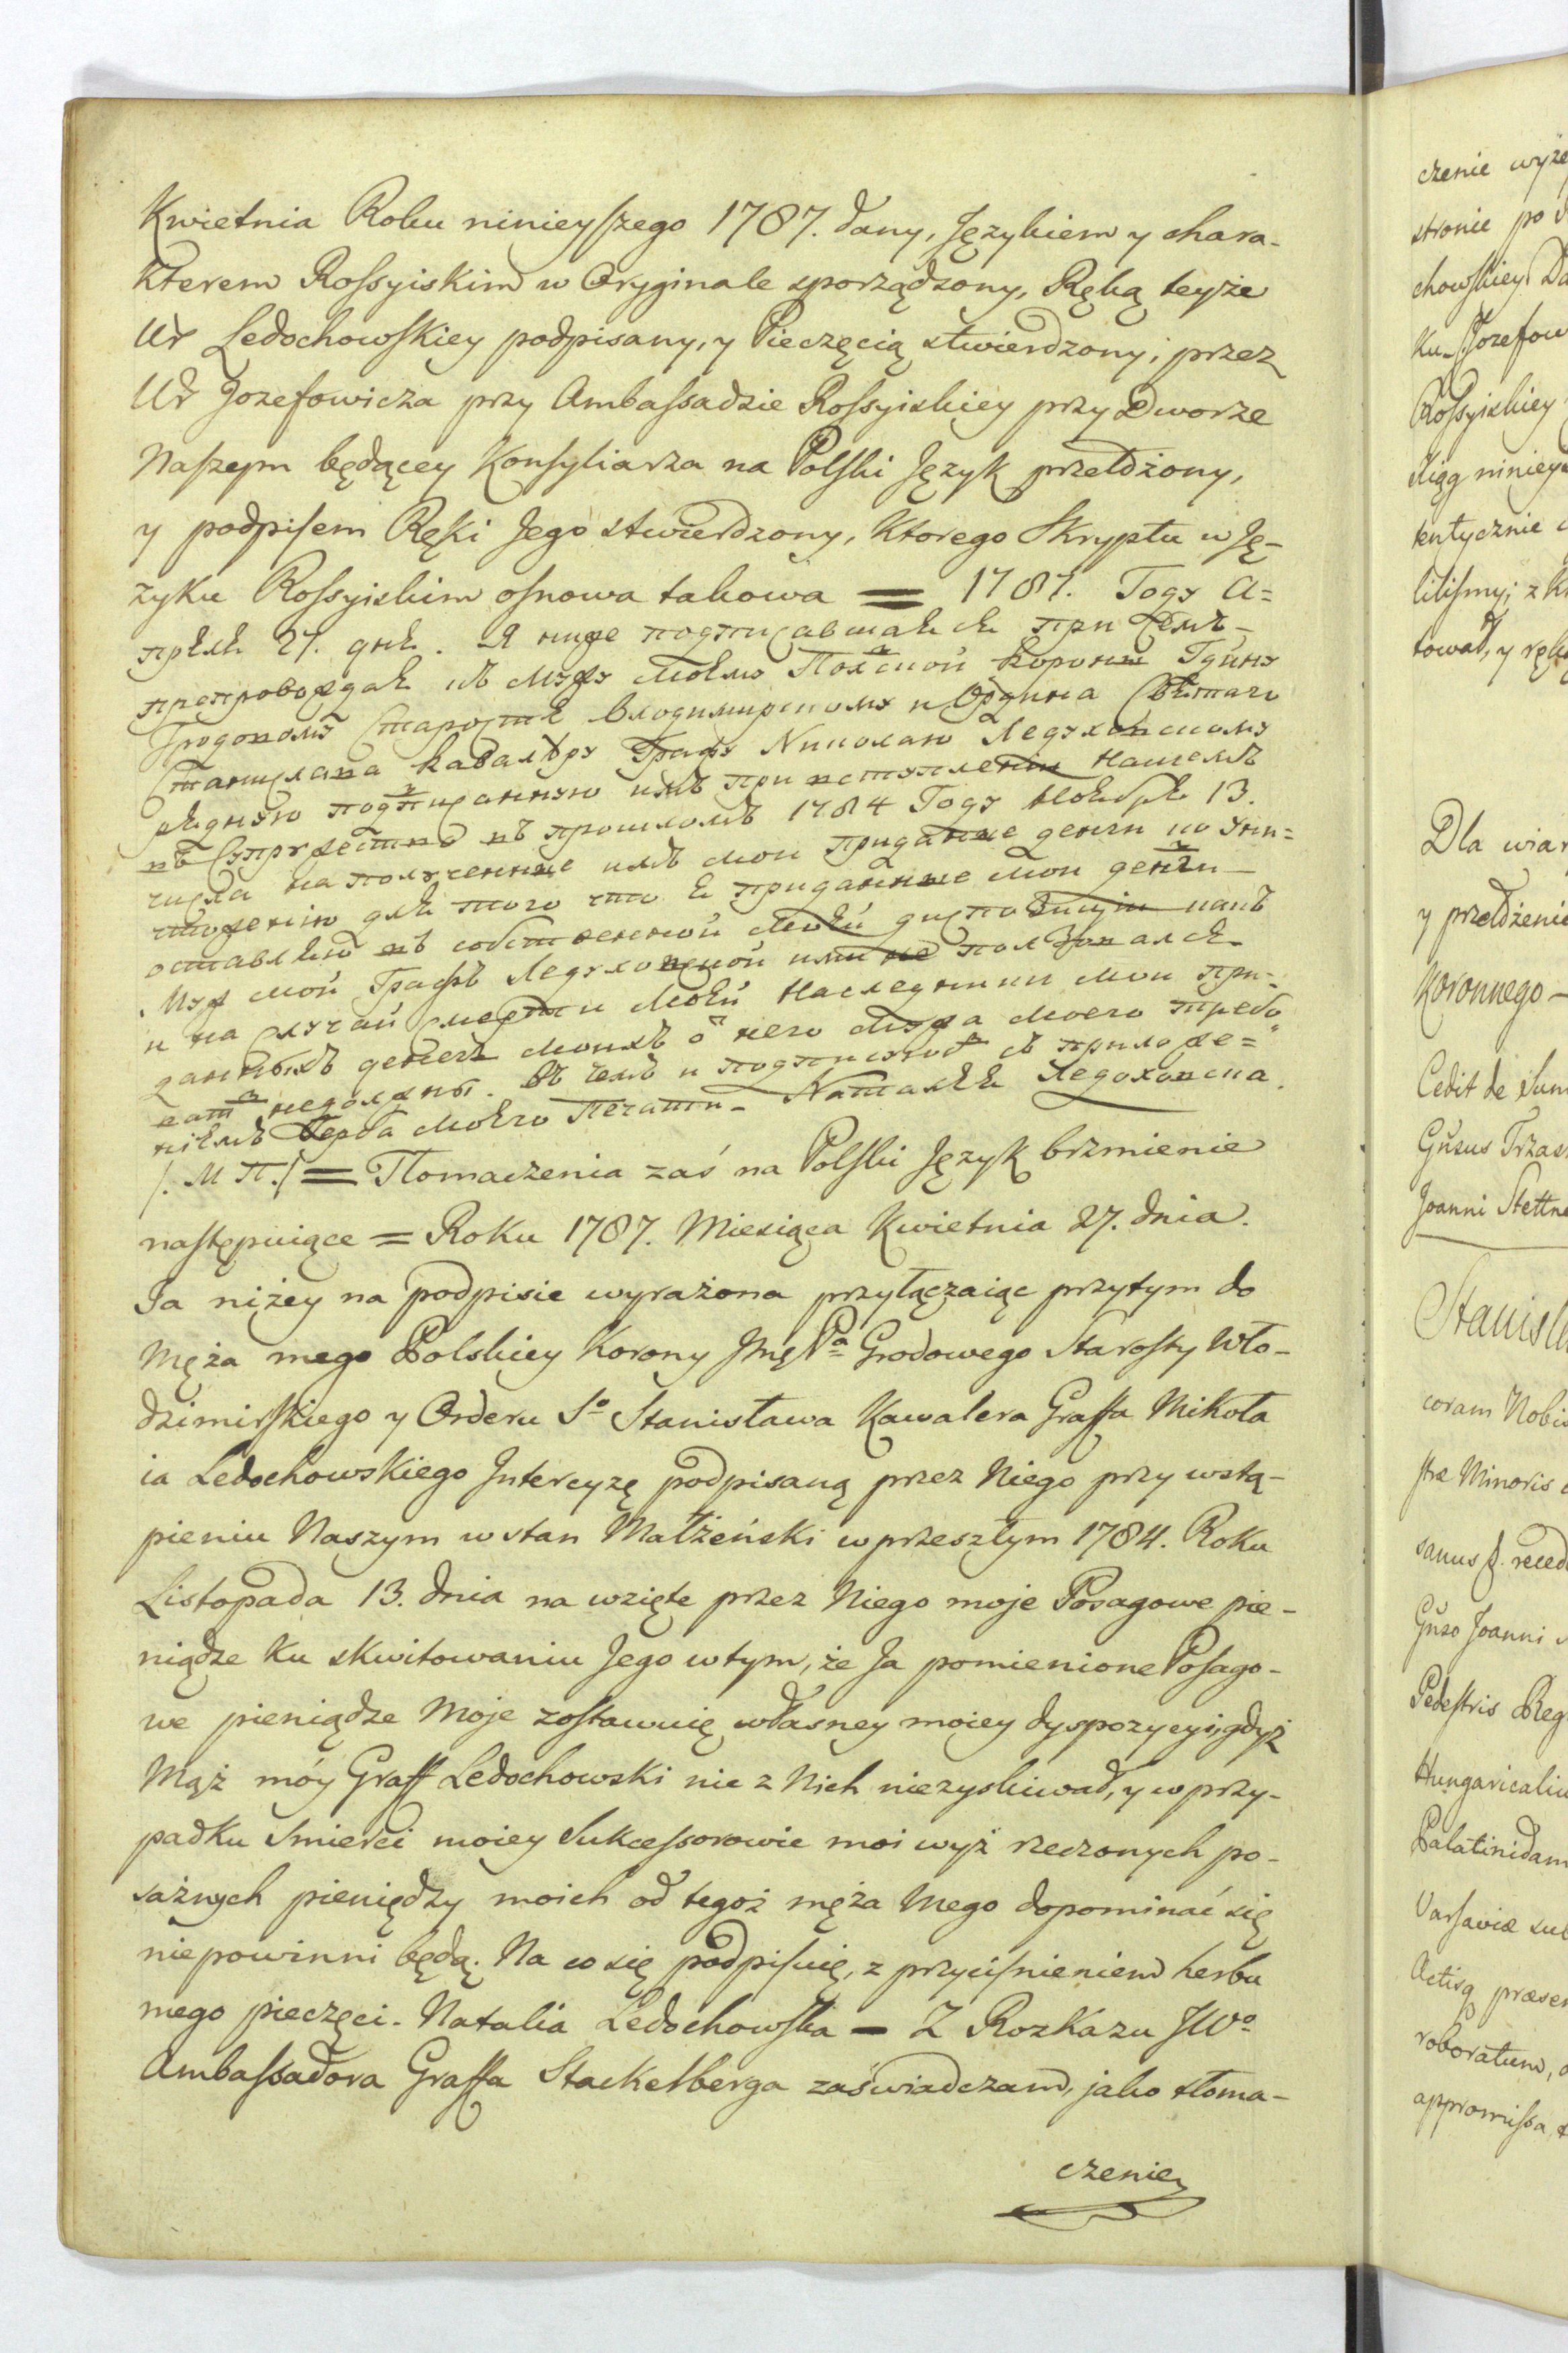 Kwietnia Roku ninieyszego 1787. dany, Językiem y chara-
kterem Rossyiskim w Oryginale sporządzony, Ręką teyże
Ur Ledochowskiey podpisany, y Pieczęcią stwierdzony; przez
Ur Jozefowicza przy Ambassadzie Rossyiskiey przy Dworze
Naszym będącey Konsyliarza na Polski Język przełożony,
y podpisem Ręki Jego stwierdzony, Ktorego Skryptu w Ję-
zyku Rossyiskim osnowa takowa = 1787. Году А=
прѣля 27. дня. Я ниже подписавшаяся при семъ
препровождая къ мужу моему Полской Короны Гдину
Гродовому Старостѣ Владимирскому и Ордина Святаго
Станислава Кавалѣру Графу Николаю Ледуховскому
рядную подписанную имъ при вступленіи нашемъ
въ Супружество въ прошломъ 1784 Году Ноября 13.
числа на полученные имъ мои приданые денги ко уни=
чтоженію для того что я приданные мои денги
оставляю въ собственной моей диспозиціи какъ
Муж мой Графъ Ледуховской ими не ползовался
и на случай смерти моей Наследники мои при=
данныхъ денегъ моихъ о него мужа моего требо
ват недолжны. Въ чемъ и подписуюсь съ приложе=
ніемъ Герба моего Печати - Наталья Ледоховска.
/. М П./ = Tłomaczenia zaś na Polski Język brzmienie
następuiące = Roku 1787. Miesiąca Kwietnia 27. dnia.
Ja niżey na podpisie wyrażona przyłączaiąc przytym do
Męża mego Polskiey Korony Jmę Pa Grodowego Starosty Wło-
dzimirskiego y Orderu So Stanisława Kawalera Graffa Mikoła
ia Ledochowskiego Intercyzę podpisaną przez Niego przy wstą-
pieniu Naszym w stan Małżeński w przeszłym 1784. Roku
Listopada 13. dnia na wzięte przez Niego moje Posagowe pie-
niądze ku skwitowaniu Jego w tym, że Ja pomienione Posago-
we pieniądze Moje zostawuię własney moiey dyspozycyi, gdyż
Mąż móy Graff Ledochowski nic z Nich niezyskiwał, y w przy-
padku Smierci moiey Sukcessorowie moi wyż rzeczonych po-
sażnych pieniędzy moich od tegoż męża Mego dopominać się
niepowinni będą. Na co się podpisuię, z przyciśnieniem herbu
mego pieczęci. Natalia Ledochowska = Z Rozkazu JWo
Ambassadora Graffa Stackelberga zaświadczam, jako tłoma-
czenie
czenie
stronie po
chowskiey
Ku Jozefow
Rossyiskiey
Xiąg niniey
tentycznie
liliśmy; z
tował, y
Dla
y przełożenie
Koronnego -
Cedit de
Joanni
coram Nobis
Minoris
Joanni
Pedestris Reg
Palatinidam
Varsaviæ
roboratum,
appromissa